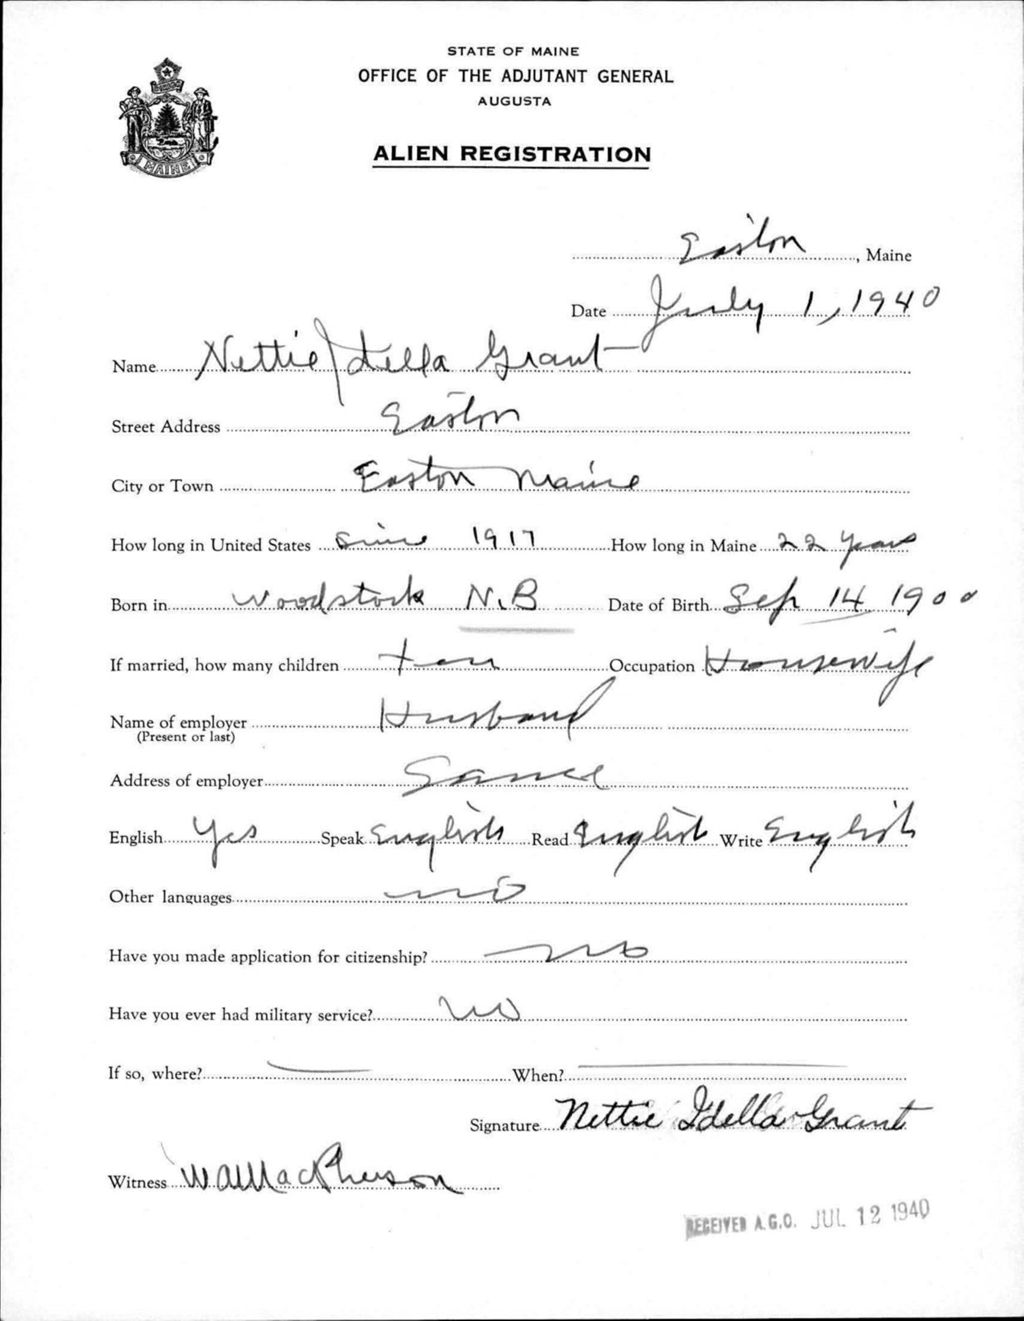 STATE OF MAINE
OFFICE OF THE ADJUTANT GENERAL
AUGUSTA
ALIEN REGISTRATION
MAINE
Easton, Maine
Date July 1, 1940
Name Nettie Idella Grant
Street Address Easton
City or Town Easton Maine
How long in United States Since 1917 How long in Maine 22 years
Born in Woodstock N.B Date of Birth Sep 14 1900
If married, how many children ten Occupation Housewife
Name of employer Husband
(Present or last)
Address of employer Same
English Yes Speak English Read English Write English
Other languages no
Have you made application for citizenship? no
Have you ever had military service? no
If so, where? — When? —
Signature Nettie Idella Grant
Witness MacPherson
RECEIVED A.G.O. JUL 12 1940